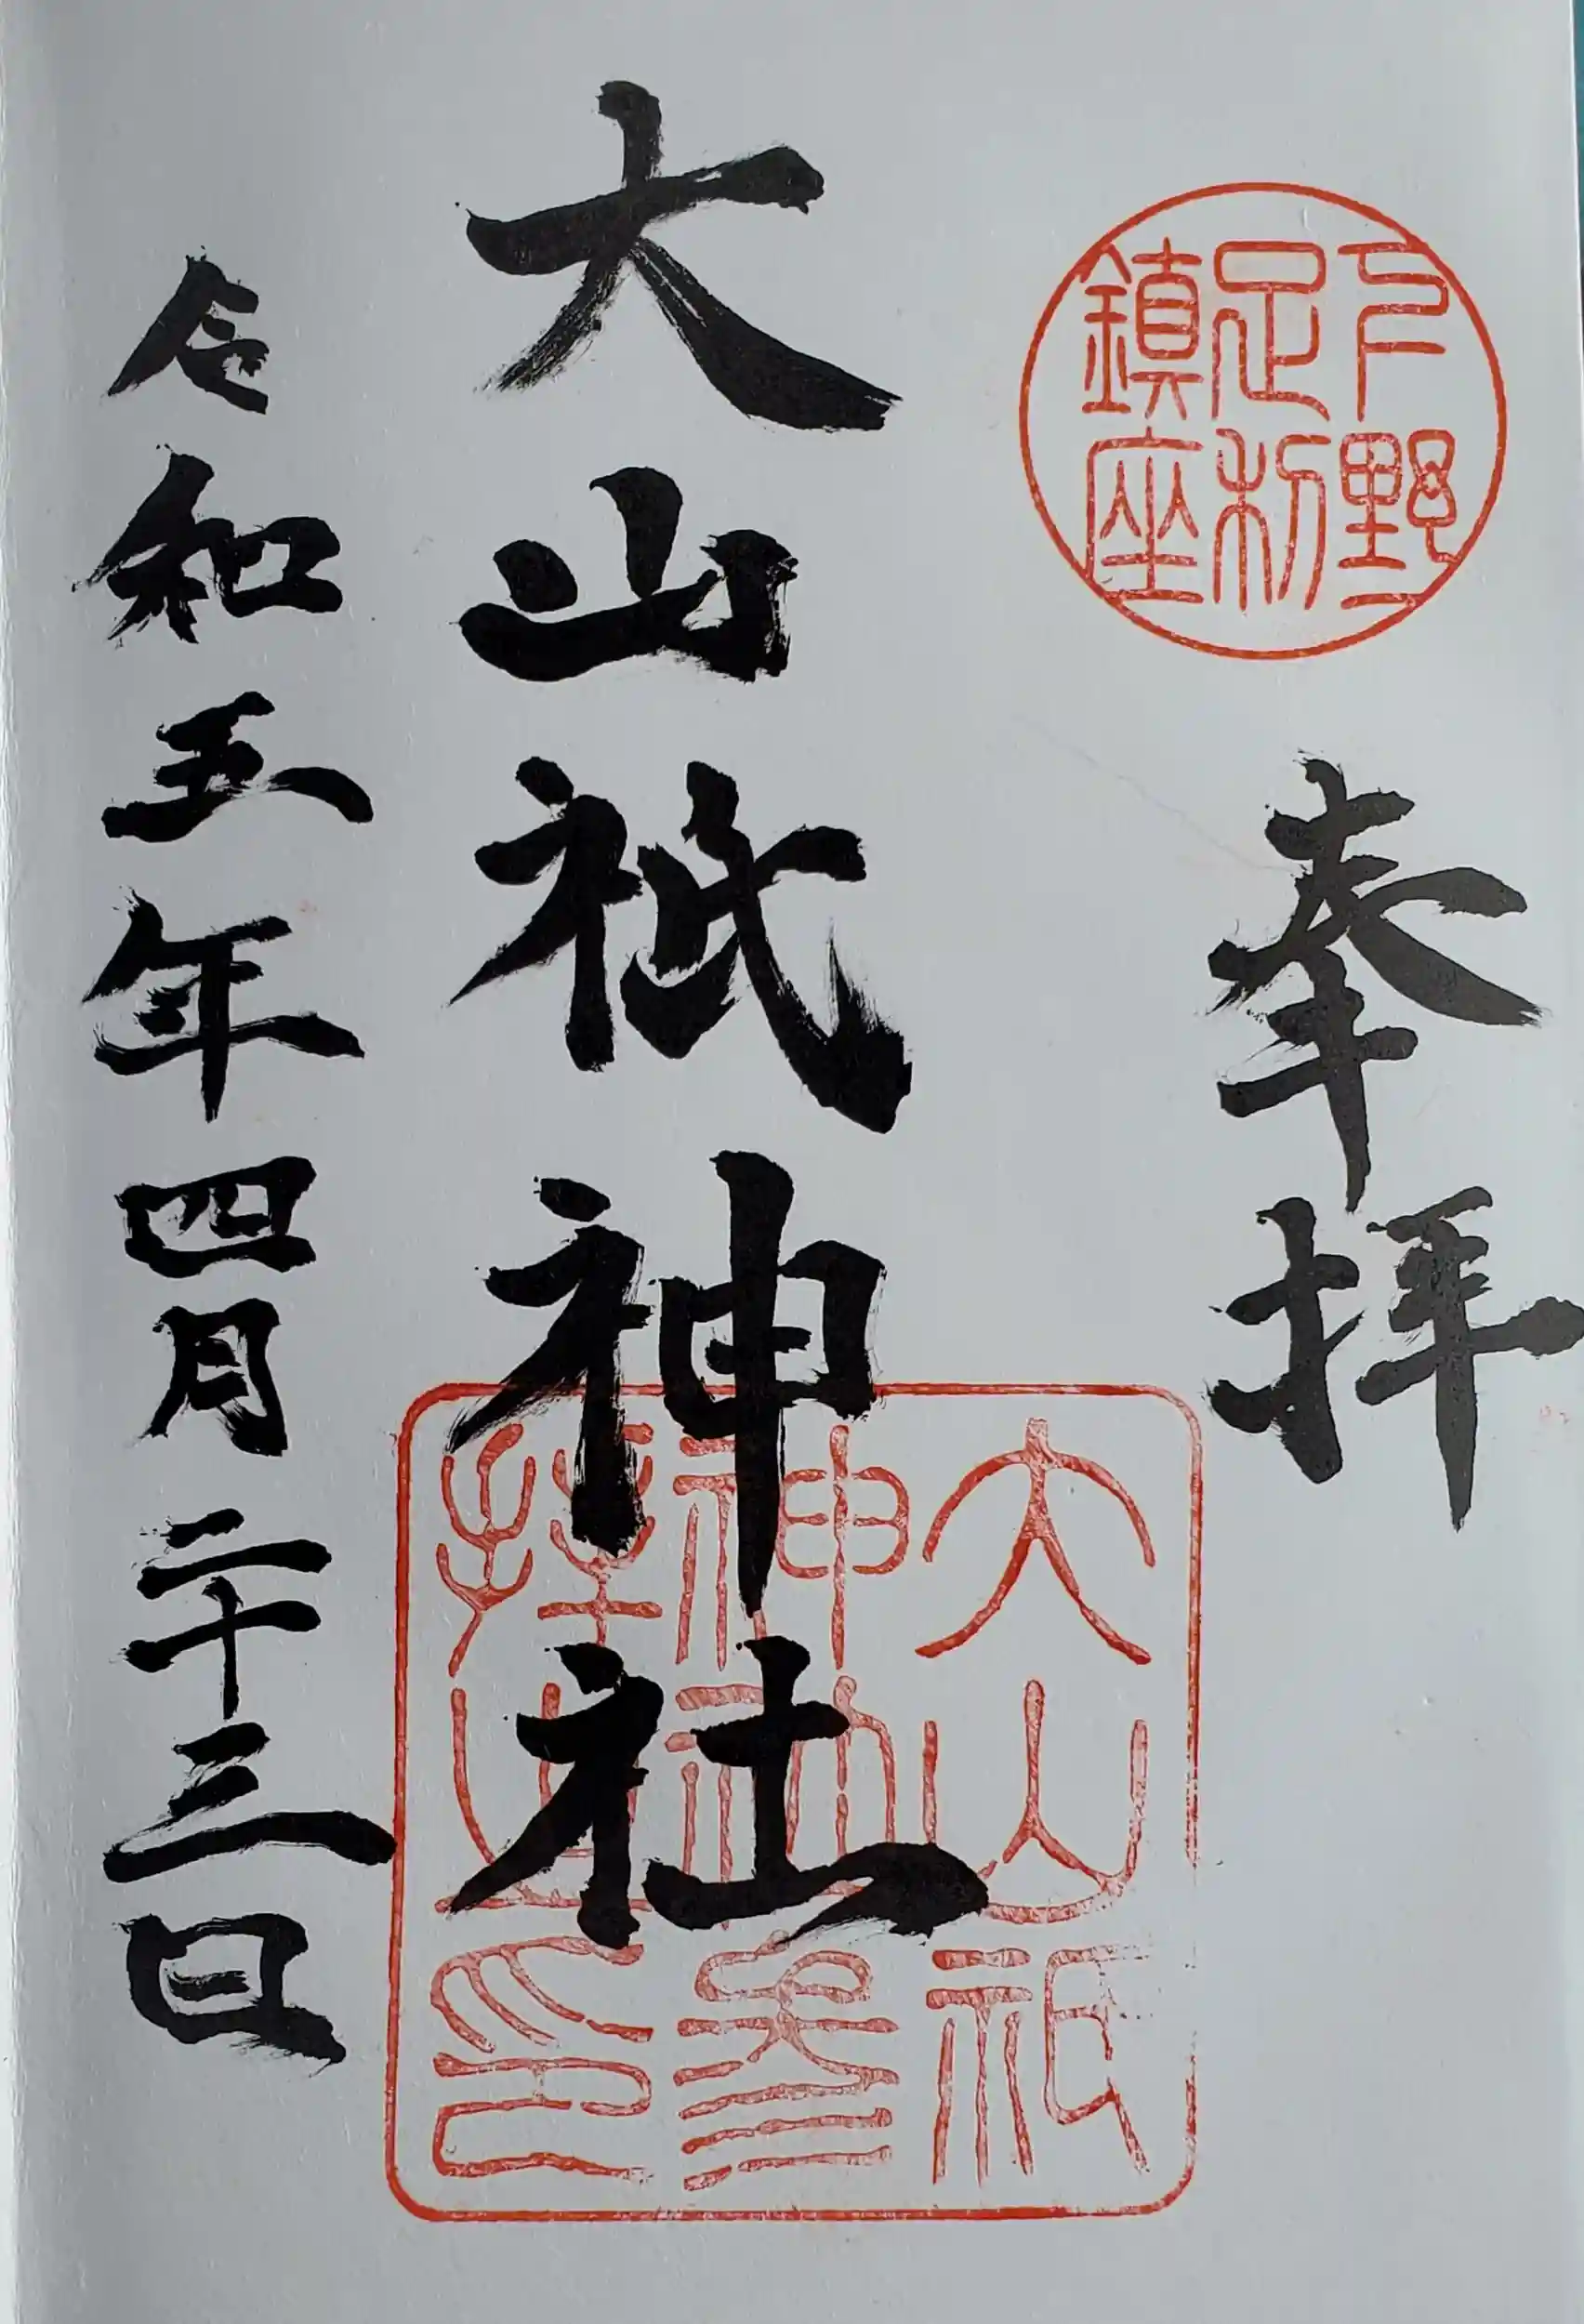 下野
足利
鎮座
奉拝
大山祇神社
大山祇
神社参
拝之印
令和五年四月二十三日